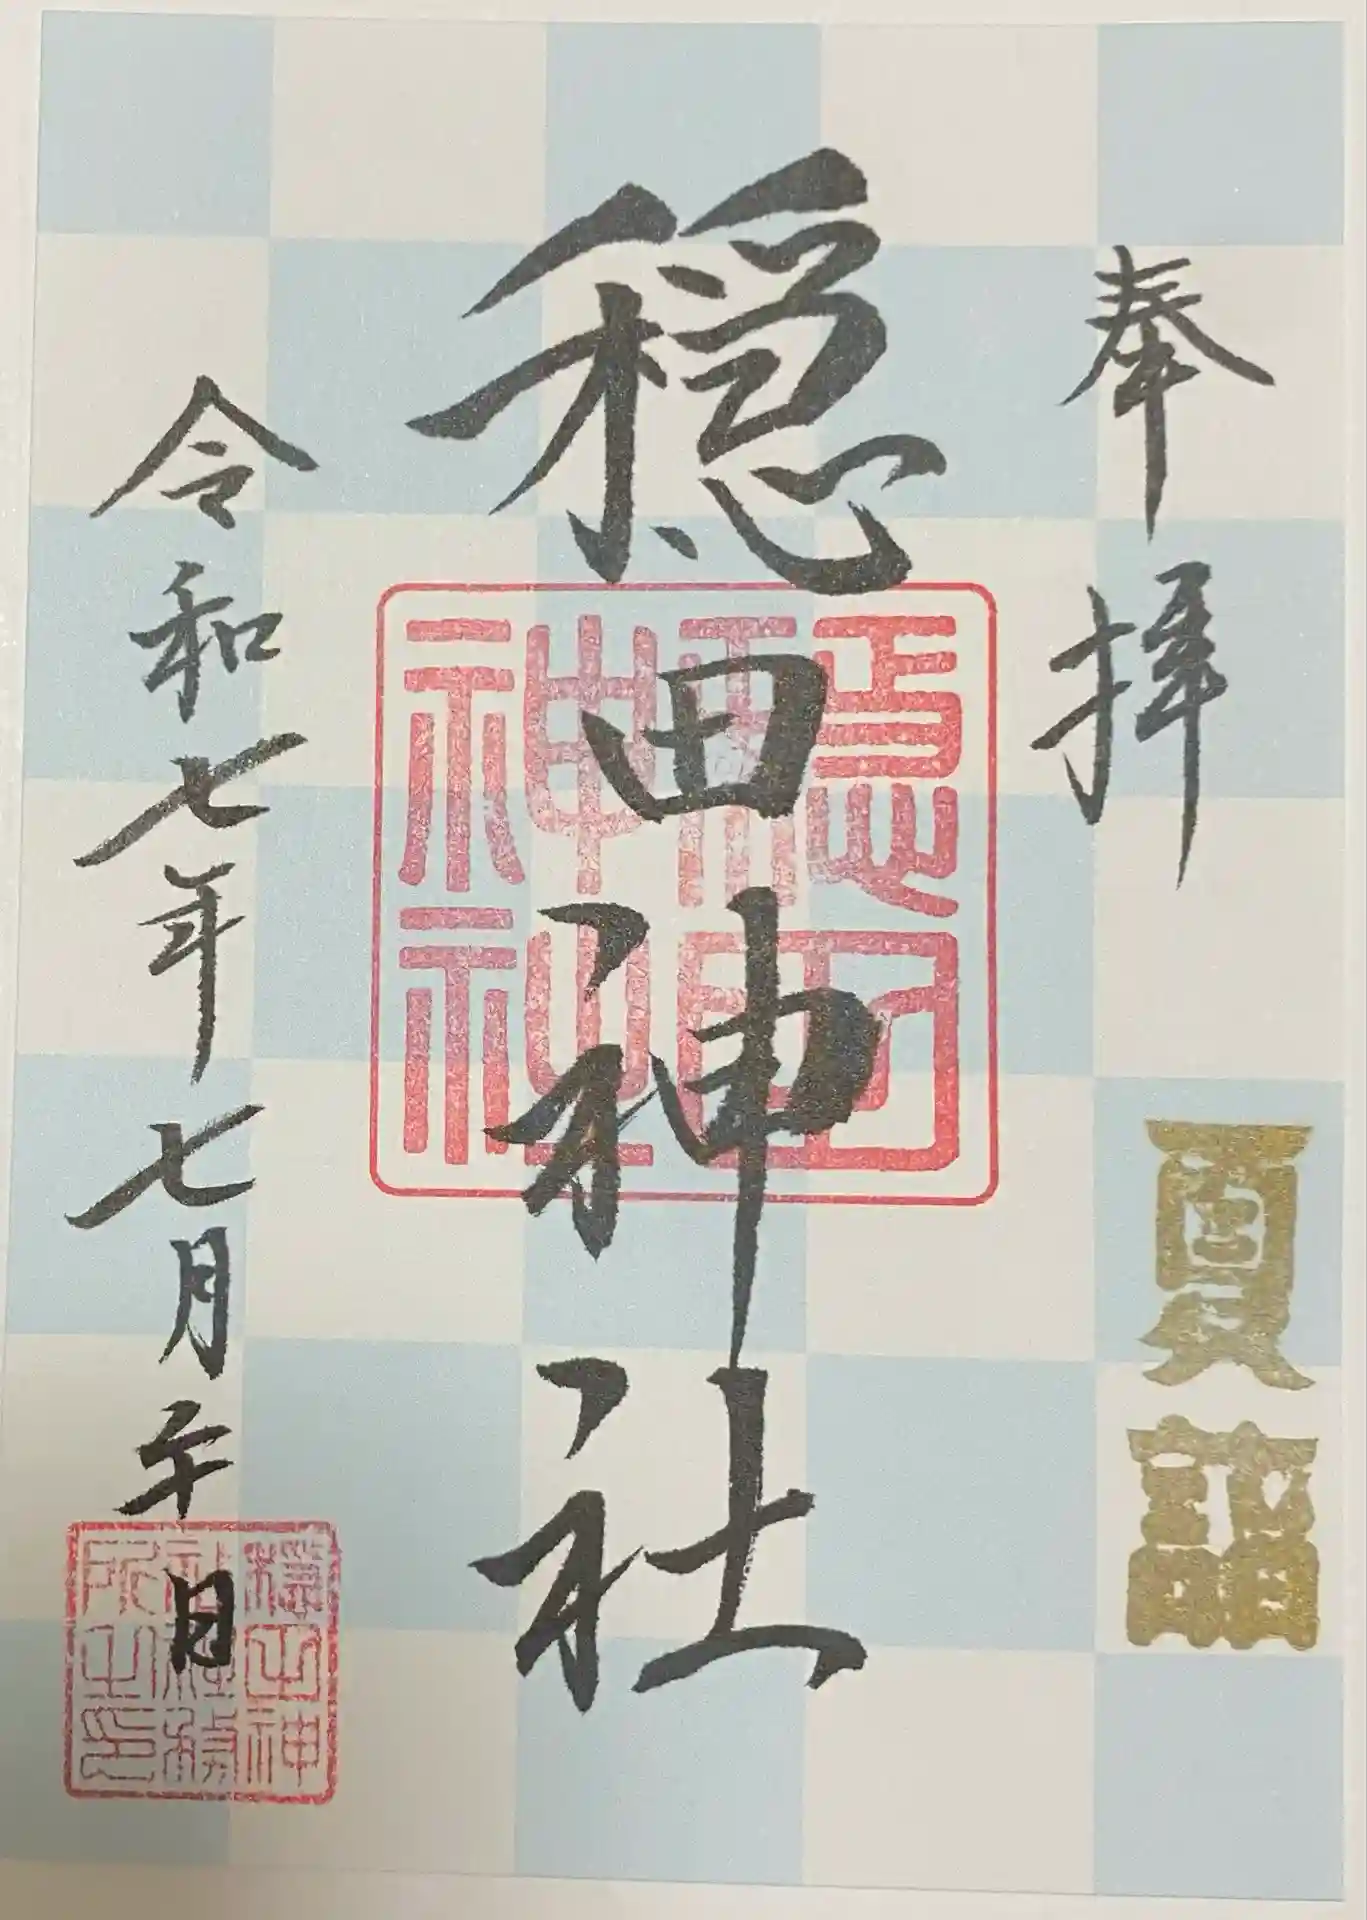 奉拝
夏詣
穏田神社
穏田神社
令和七年七月午日
穏田神
社社務
所之印